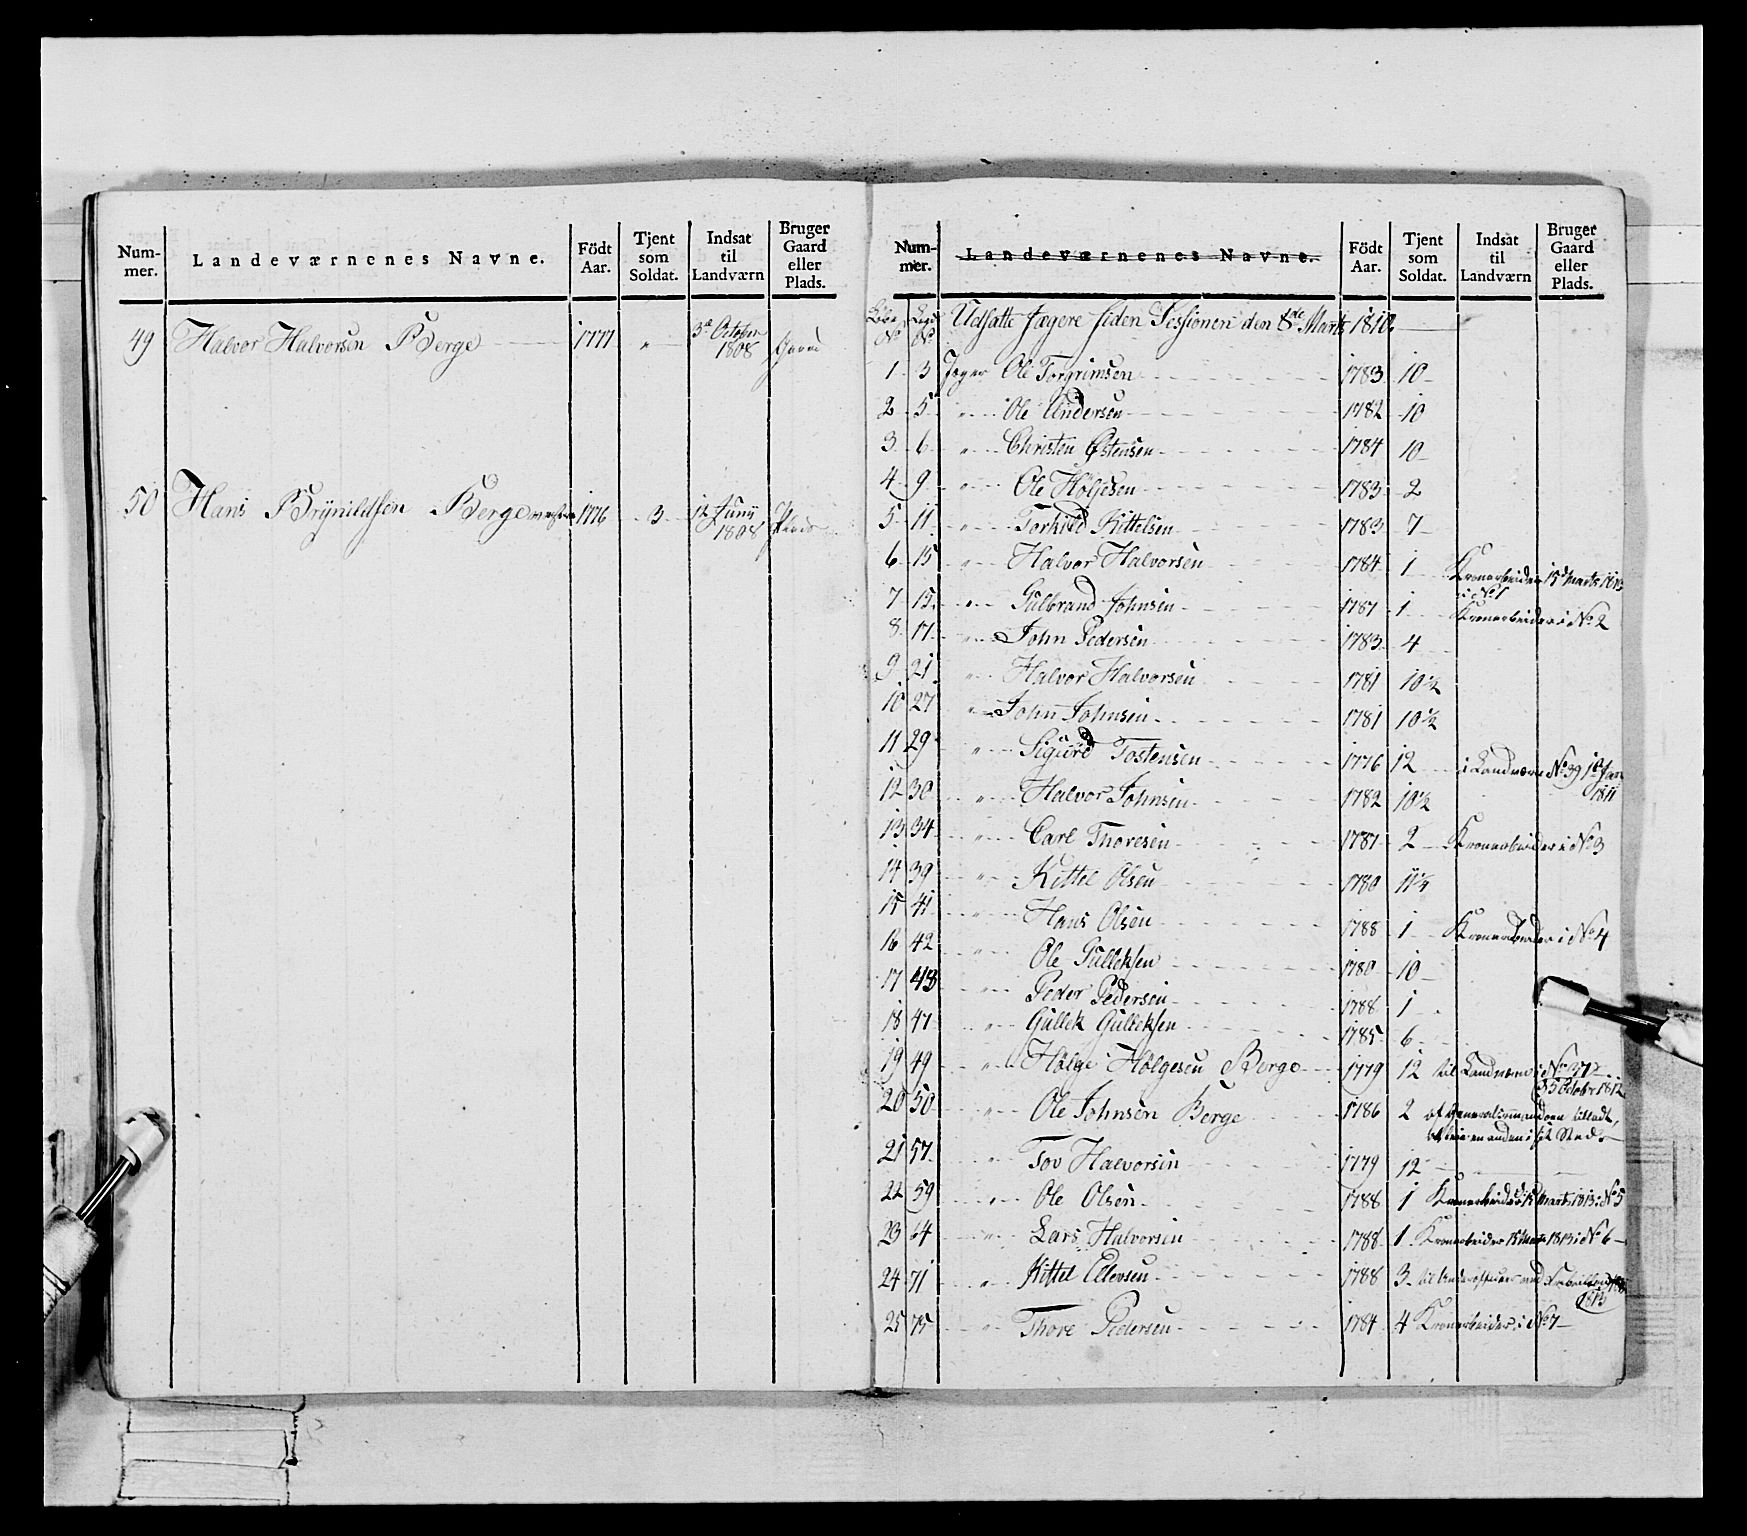 Num-
mer.
Landeværnenes Navne.
Födt
Aar.
Tjent
som
Soldat.
Indsat
til
Landværn
Bruger
Gaard
eller
Plads.
49 Halvor Halvorsen Berge 1777 " 3d October
1808 Gaard
50 Hans Brÿnildsen Berge 1776 3 12 Junÿ
1808 Plads
Num-
mer.
Landeværnenes Navne.
Födt
Aar.
Tjent
som
Soldat.
Indsat
til
Landværn
Bruger
Gaard
eller
Plads.
Löbe
No Legd
No Udsatte Jægere siden Sessionen den 8de Marts 1810.
1 3 Jæger Ole Torgrimsen 1783 10
2 5 " Ole Andersen 1782 10
3 6 " Christen Østensen 1784 10
4 9 " Ole Höljesen 1783 2
5 11 " Torkild Kittelsen 1783 7
6 15 " Halvor Halvorsen 1784 1 Kronarbeider 15d Marts 1813
i No 1
7 15 " Gulbrand Johnsen 1787 1 Kronarbeider i No 2
8 17 " John Pedersen 1783 4
9 21 " Halvor Halvorsen 1781 10½
10 27 " John Johnsen 1781 10½
11 29 " Sigurd Tostensen 1776 12 i Landværn No 39 1d Jan
1811
12 30 " Halvor Johnsen 1782 10½
13 34 " Carl Thoresen 1787 2 Kronarbeider i No 3
14 39 " Kittel Olsen 1780 11½
15 41 " Hans Olsen 1788 1 Kronarbeider i No 4
16 42 " Ole Gulleksen 1780 10
17 43 " Peder Pedersen 1788 1
18 47 " Gullek Gulleksen 1785 6
19 49 " Hölge Hölgesen Berge 1779 12 til Landværn i No 37
October 1812
20 50 " Ole Johnsen Berge 1786 2 af Generalcommandoen tilladt,
at leie en anden i sit Sted.
21 57 " Tov Halvorsen 1779 12
22 59 " Ole Olsen 1788 1 Kronarbeider 15 Marts 1813 i No 5
23 64 " Lars Halvorsen 1788 1 Kronarbeider 15 Marts 1813 i No 6
24 71 " Kittel Ellevsen 1788 3 til Underofficeer ved
1813
25 75 " Thore Pedersen 1784 4 Kronarbeider i No 7